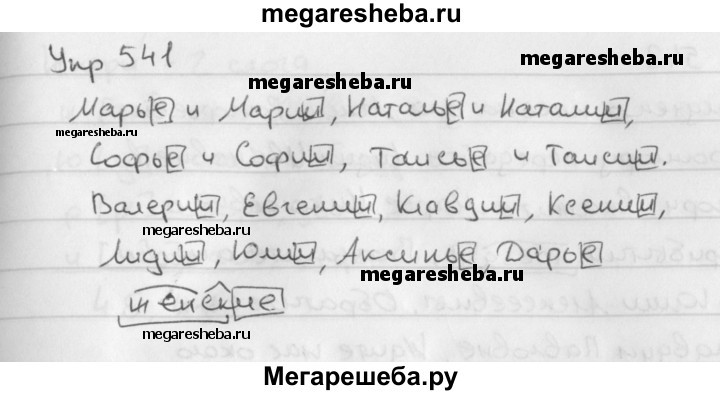 megaresheba.ru
Упр 541
megaresheba.ru
megaresheba.ru
Марье и Марии, Наталье и Наталии,
megaresheba.ru
Софье и Софии, Таисье и Таисии.
Валерии, Евгении, Клавдии, Ксении,
megaresheba.ru
Лидии, Юлии, Аксинье, Дарье
megaresheba.ru
женские
megaresheba.ru
Мегарешеба.ру